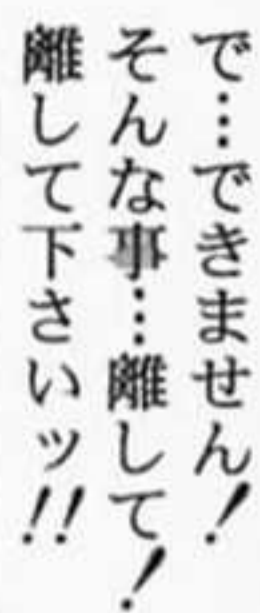 で…できません!
そんな事…離して!
離して下さいッ!!